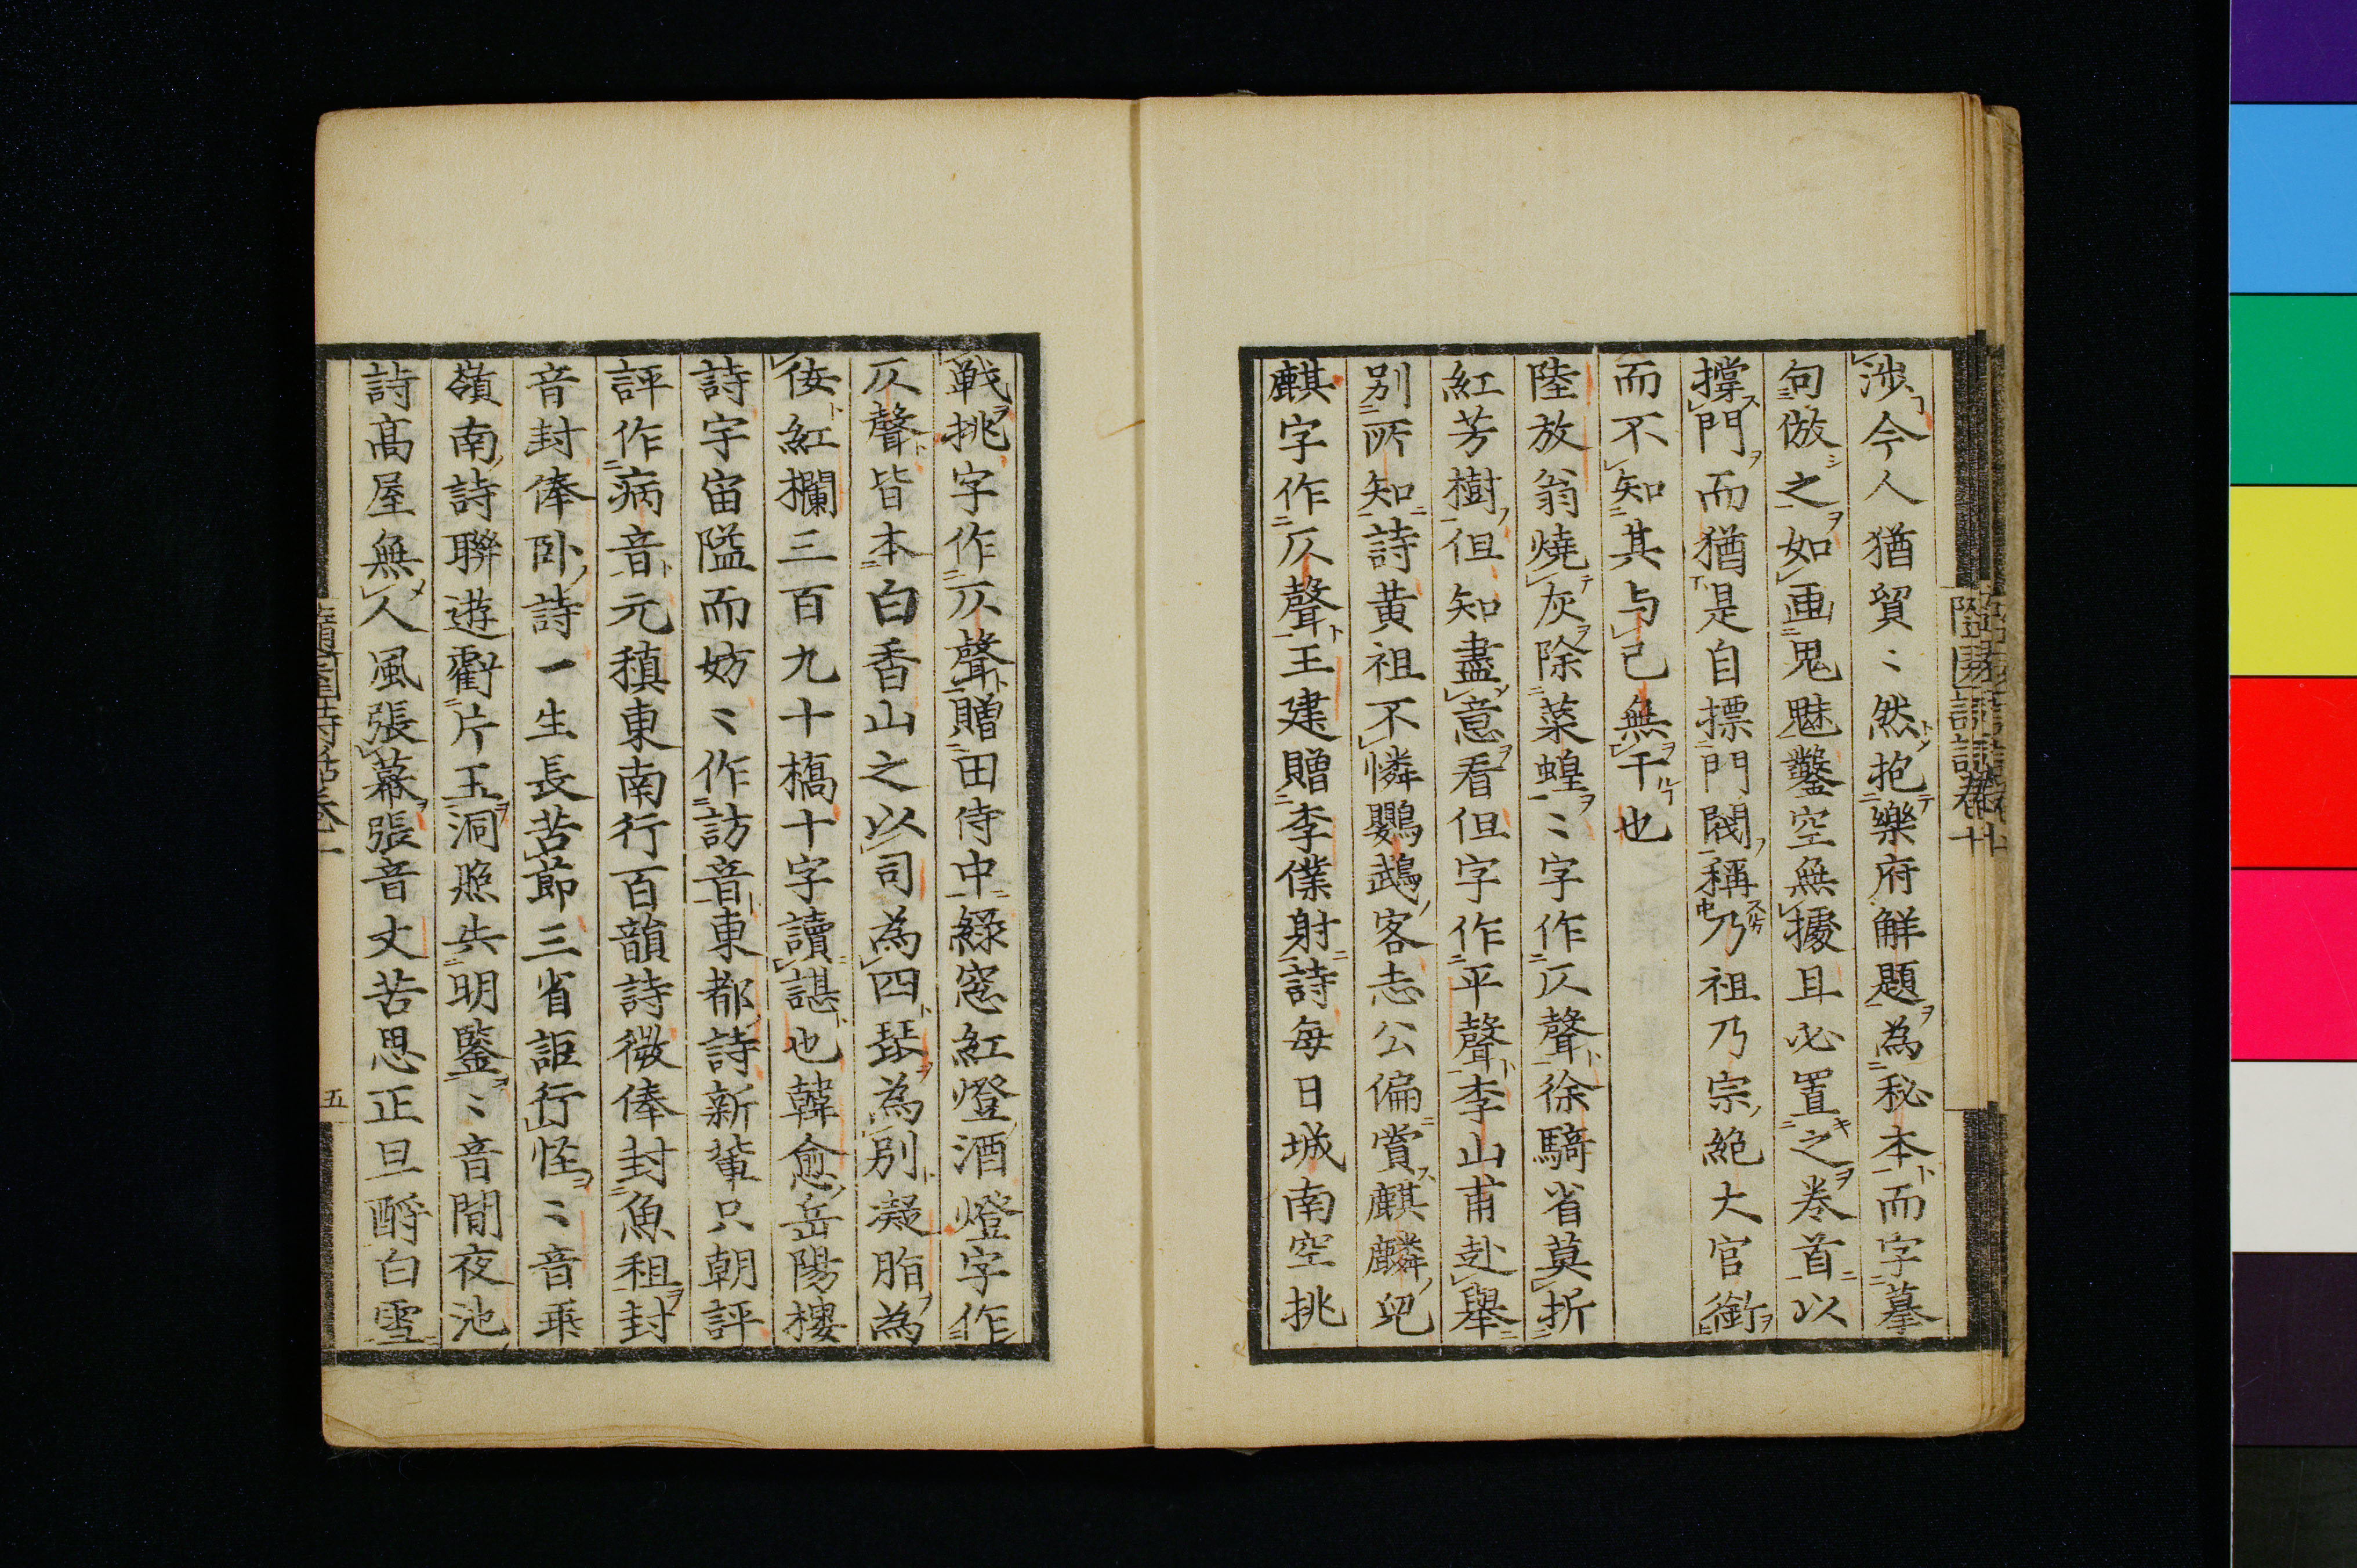 涉今人猶貿〻然抱樂府解題為秘本而字摹
句倣之如画鬼魅鑿空無據且必置之卷首以
撑門而猶是自摽門閥稱乃祖乃宗絶大官銜
而不知其与己無干也
陸放翁燒灰除菜蝗〻字作仄聲徐騎省莫折
紅芳樹但知盡意看但字作平聲李山甫赴舉
别所知詩黄祖不憐鸚鵡客志公偏賞麒麟兒
麒字作仄聲王建贈李僕射詩每日城南空挑
戦挑字作仄聲贈田侍中緑窓紅燈酒燈字作
仄聲皆本白香山之以司為四琵為别凝脂為
佞紅欄三百九十橋十字讀諶也韓愈岳陽樓
詩宇宙隘而妨〻作訪音東都詩新輩只朝評
評作病音元稹東南行百韻詩微俸封魚租封
音封俸卧詩一生長苦節三省詎行怪〻音乖
嶺南詩聯遊虧片玉洞照失明鑒〻音間夜池
詩高屋無人風張幕張音丈苦思正旦酧白雪
五